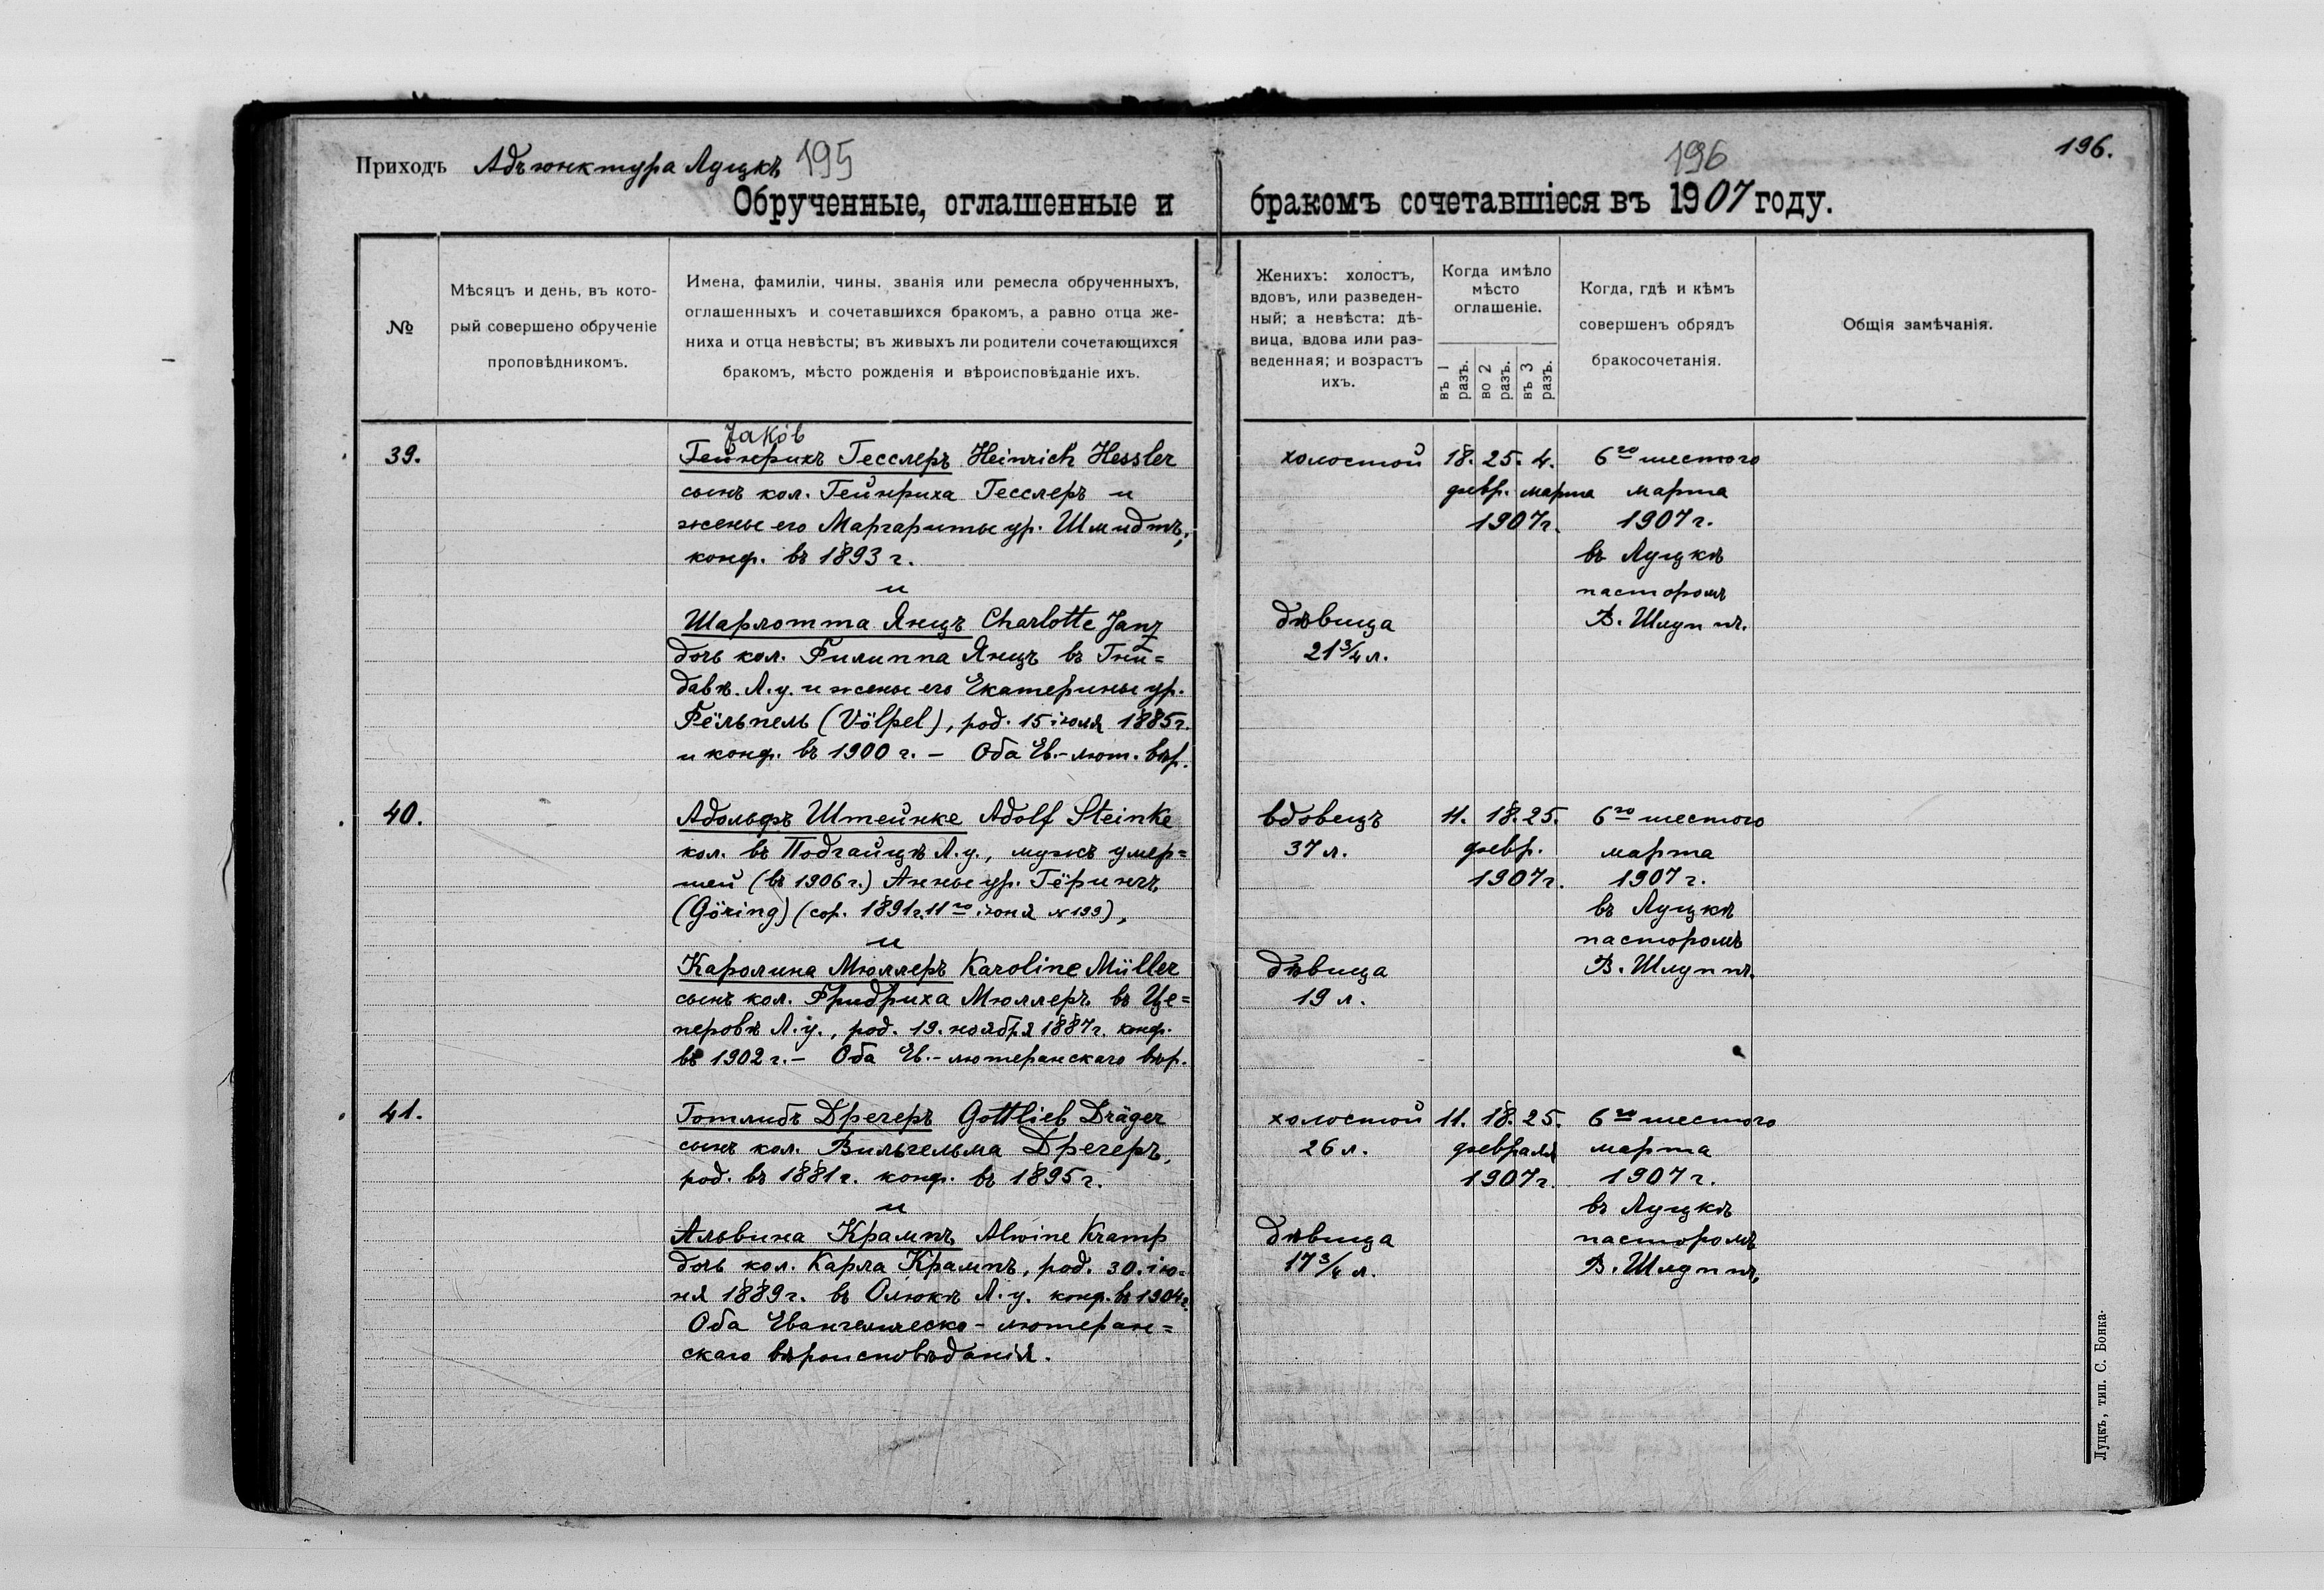 Приходъ Адъюнктура Луцкъ 195
196
196.
Обрученные, оглашенные и бракомъ сочетавшіеся въ 1907 году.
№
Мѣсяцъ и день, въ кото-
рый совершено обрученіе
проповѣдникомъ.
Имена, фамиліи, чины, званія или ремесла обрученныхъ,
оглашенныхъ и сочетавшихся бракомъ, а равно отца же-
ниха и отца невѣсты; въ живыхъ ли родители сочетающихся
бракомъ, мѣсто рожденія и вѣроисповѣданіе ихъ.
Женихъ: холостъ,
вдовъ, или разведен-
ный; а невѣста: дѣ-
вица, вдова или раз-
веденная; и возрастъ
ихъ.
Когда имѣло
мѣсто
оглашеніе.
въ 1
разъ.
во 2
разъ.
въ 3
разъ.
Когда, гдѣ и кѣмъ
совершенъ обрядъ
бракосочетанія.
Общія замѣчанія.
39.
Jакóв
Гейнрихъ Гесслеръ Heinrich Hessler
сынъ кол. Гейнриха Гесслеръ и
жены его Маргариты ур. Шмидтъ,
конф. въ 1893 г.
и
Шарлотта Янцъ Charlotte Janz
дочь кол. Филиппа Янцъ въ Гни=
давѣ Л.у. и жены его Екатерины ур.
Фёльпель (Völpel), род. 15 іюля 1885 г.
и конф. въ 1900 г. – Оба Ев.-лют. вѣр.
холостой
дѣвица
21 3/4 л.
18. 25. 4.
февр. марта
1907 г.
6го шестого
марта
1907 г.
въ Луцкѣ
пасторомъ
В. Шлуппъ.
40.
Адольфъ Штейнке Adolf Steinke
кол. въ Подгайцѣ Л.у., мужъ умер=
шей (въ 1906 г.) Анны ур. Гёрингъ
(Göring) (сор. 1891 г. 11го іюня № 199),
и
Каролина Мюллеръ Karoline Müller
сынъ кол. Фридриха Мюллеръ въ Це=
перовѣ Л.у., род. 19. ноября 1887 г. конф.
въ 1902 г. – Оба Ев.-лютеранскаго вѣр.
вдовецъ
37 л.
дѣвица
19 л.
11. 18. 25.
февр.
1907 г.
6го шестого
марта
1907 г.
въ Луцкѣ
пасторомъ
В. Шлуппъ.
41.
Готлибъ Дрегеръ Gottlieb Dräger
сынъ кол. Вильгельма Дрегеръ,
род. въ 1881 г. конф. въ 1895 г.
и
Альвина Крампъ Alwine Kramp
дочь кол. Карла Крампъ, род. 30. ію=
ня 1889 г. въ Олюкѣ Л.у. конф. въ 1904 г.
Оба Евангелическо-лютеран=
скаго вѣроисповѣданія.
холостой
26 л.
дѣвица
17 3/4 л.
11. 18. 25.
февраля
1907 г.
6го шестого
марта
1907 г.
въ Луцкѣ
пасторомъ
В. Шлуппъ.
Луцкъ, тип. С. Бонка.